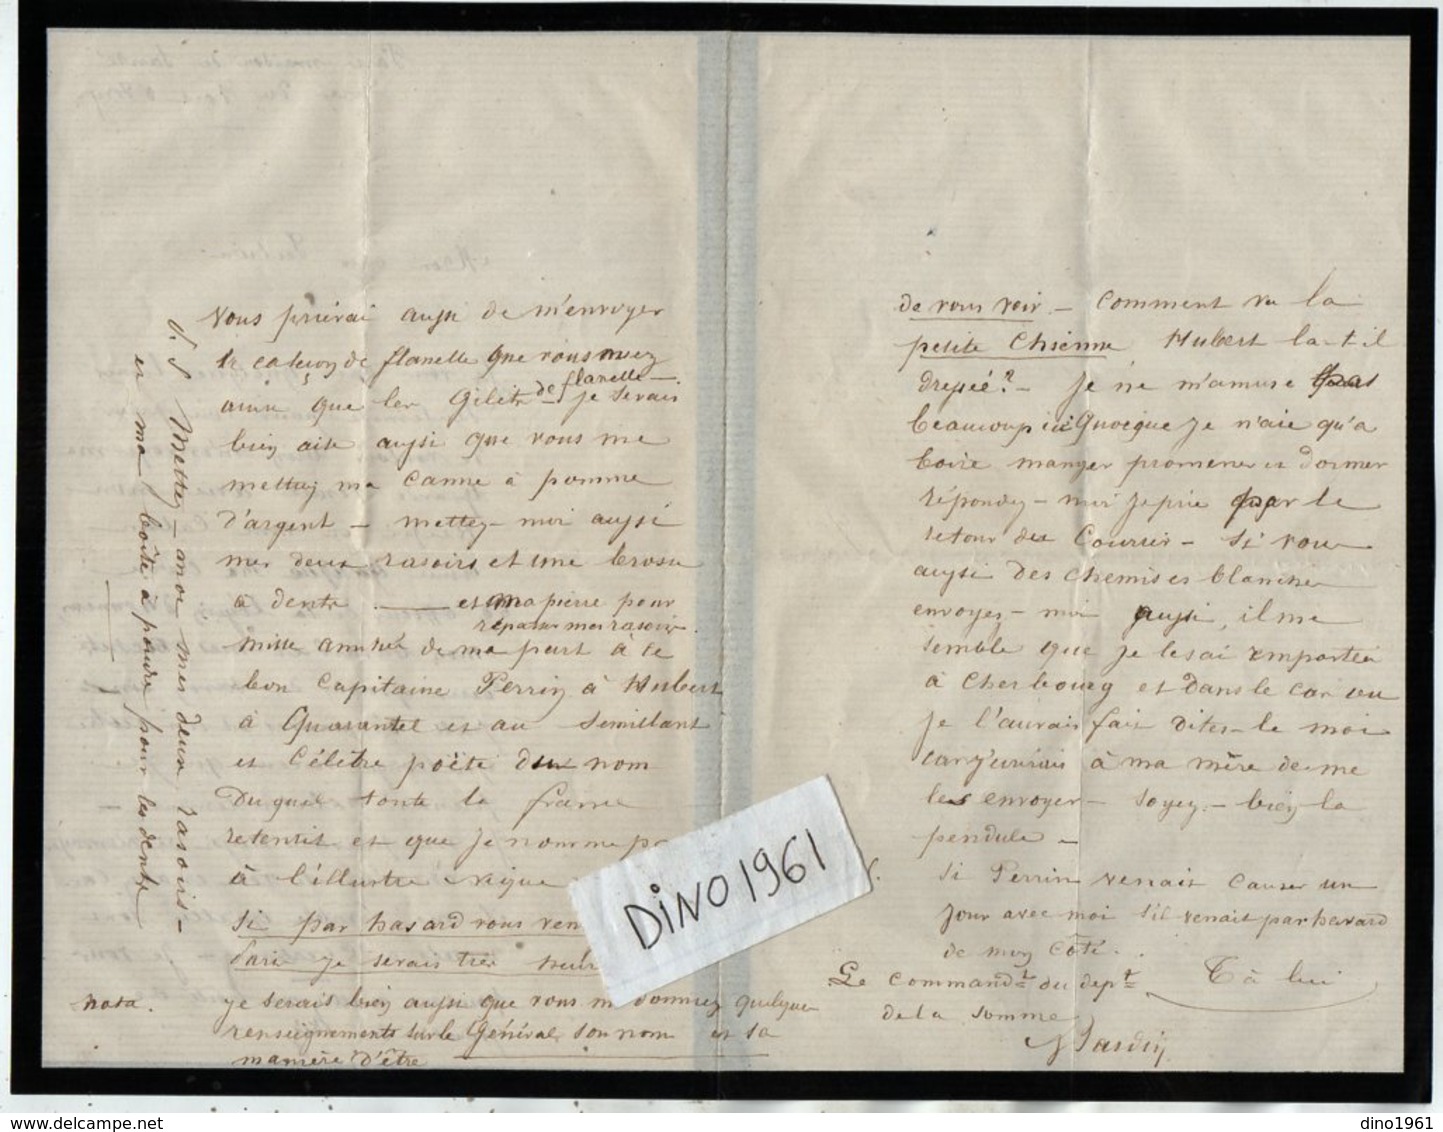 Vous prierai aussi de m'envoyer
le caleçon de flanelle que vous
ainsi que les Gilets de flanelle - je serais
bien aise aussi que vous me
mettiez ma Canne à pomme
d'argent - mettez-moi aussi
mes deux rasoirs et une brosse
à dents — et ma pierre pour
repasser mes rasoirs.
Mille amitiés de ma part à ce
bon Capitaine Perrin à Hubert
à Quarantel et au semillant
et Célèbre poëte du nom
Duquel toute la france
retentit et que je nomme
à l'illustre
Si par hasard vous
Paris je serais très
nota. je serais bien aussi que vous me donniez quelques
renseignements sur le Général, son nom et sa
manière d'être
P.S Mettez-moi mes deux rasoirs -
et ma boîte à poudre pour les dents
de vous voir. - Comment va la
petite Chienne Hubert la-t-il
dressée? - Je ne m'amuse pas
beaucoup ici Quoique je n'aie qu'a
boire manger promener et dormir
répondez-moi je prie par le
retour du Courrier - Si vous
aussi Des chemises blanches
envoyez-moi aussi, il me
semble que je les ai emportées
à Cherbourg et dans le cas ou
je l'aurais fait dites-le moi
car j'écrirais à ma mère de me
les envoyer - Soyez - bien la
pendule -
Si Perrin venait causer un
jour avec moi s'il venait par hasard
de mon côté.
Le Command.t du dep.t T à lui
de la Somme
DiNO 1961
dino1961